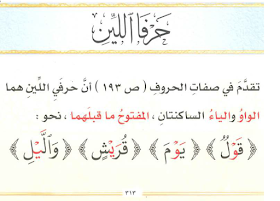 حَرْفَا اللِّين
تقدَّمَ في صفاتِ الحروفِ ( ص ١٩٣ ) أنَّ حَرفَيِ اللِّينِ هما
الواوُ والياءُ الساكنتانِ ، المفتوحُ ما قبلَهما ، نحو :
﴿ قَوْلٌ ﴾ ﴿ يَوْمَ ﴾ ﴿ قُرَيْشٍ ﴾ ﴿ وَالَّيْلِ ﴾
٣١٣